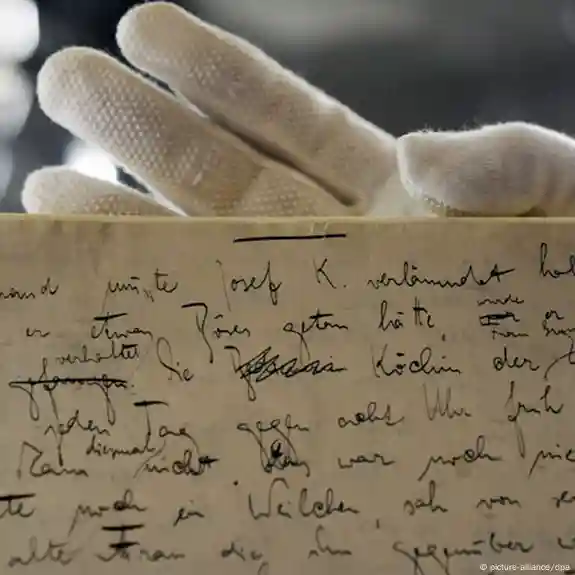 mand musste Josef K. verläumdet hab
er etwas Böses getan hätte, wurde er
verhaftet
gefangen. Die Köchin der
jeden Tag gegen acht Uhr früh
diesmal
kam nicht. Das war noch nie
te noch ein Weilchen, sah von se
alte Frau die ihm gegenüber w
© picture-alliance/dpa